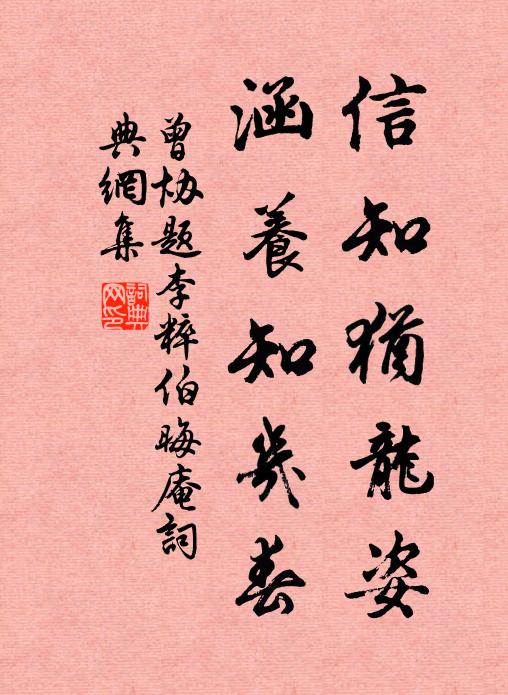 信知猶龍姿
涵養知幾春
曾協題李粹伯晦庵詞
典網集
詞典網印